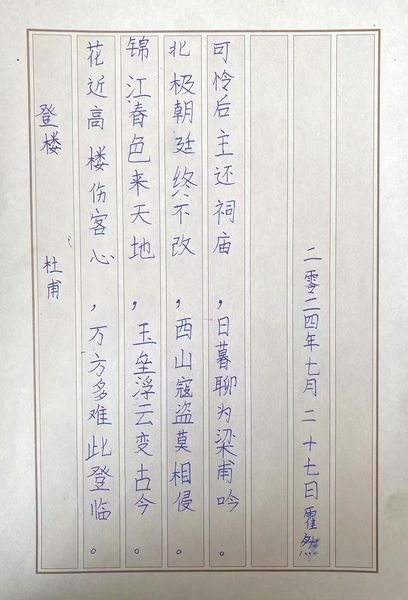 登楼 杜甫
花近高楼伤客心，万方多难此登临。
锦江春色来天地，玉垒浮云变古今。
北极朝廷终不改，西山寇盗莫相侵。
可怜后主还祠庙，日暮聊为梁甫吟。
二零二四年七月二十七日霍然